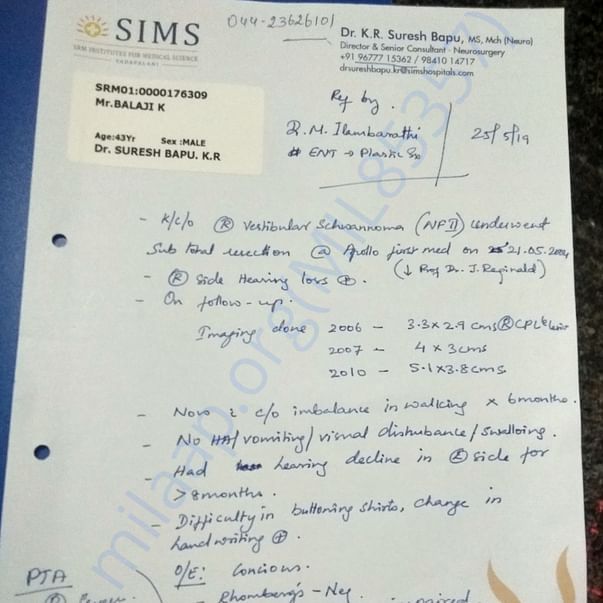 SIMS
SRM INSTITUTES FOR MEDICAL SCIENCE
VADAPALANI
044-23626101
Dr. K.R. Suresh Bapu, MS, Mch (Neuro)
Director & Senior Consultant - Neurosurgery
+91 96777 15362 / 98410 14717
drsureshbapu.kr@simshospitals.com
SRM01:0000176309
Mr.BALAJI K
Age:43Yr Sex :MALE
Dr. SURESH BAPU. K.R
Ref by.
Dr. M. Ilambarathi
ENT → Plastic Sx
25/5/19
- K/c/o Ⓡ Vestibular Schwannoma (NF II) underwent
Sub total resection @ Apollo first med on 21.05.2004
(↓ Prof Dr. J. Reginald)
- Ⓡ Side Hearing loss ⊕.
- On follow-up.
Imaging done 2006 - 3.3 x 2.9 cms Ⓡ CPL
2007 - 4 x 3 cms
2010 - 5.1 x 3.8 cms
- Now c c/o imbalance in walking x 6 months.
- No HA/ vomiting/ visual disturbance/ swalloing.
- Had hearing decline in Ⓛ side for
> 8 months.
- Difficulty in buttoning shirts, change in
handwriting ⊕.
O/E: Concious.
Rhomberg's - Neg
PTA
milaap.org(MIL85357)